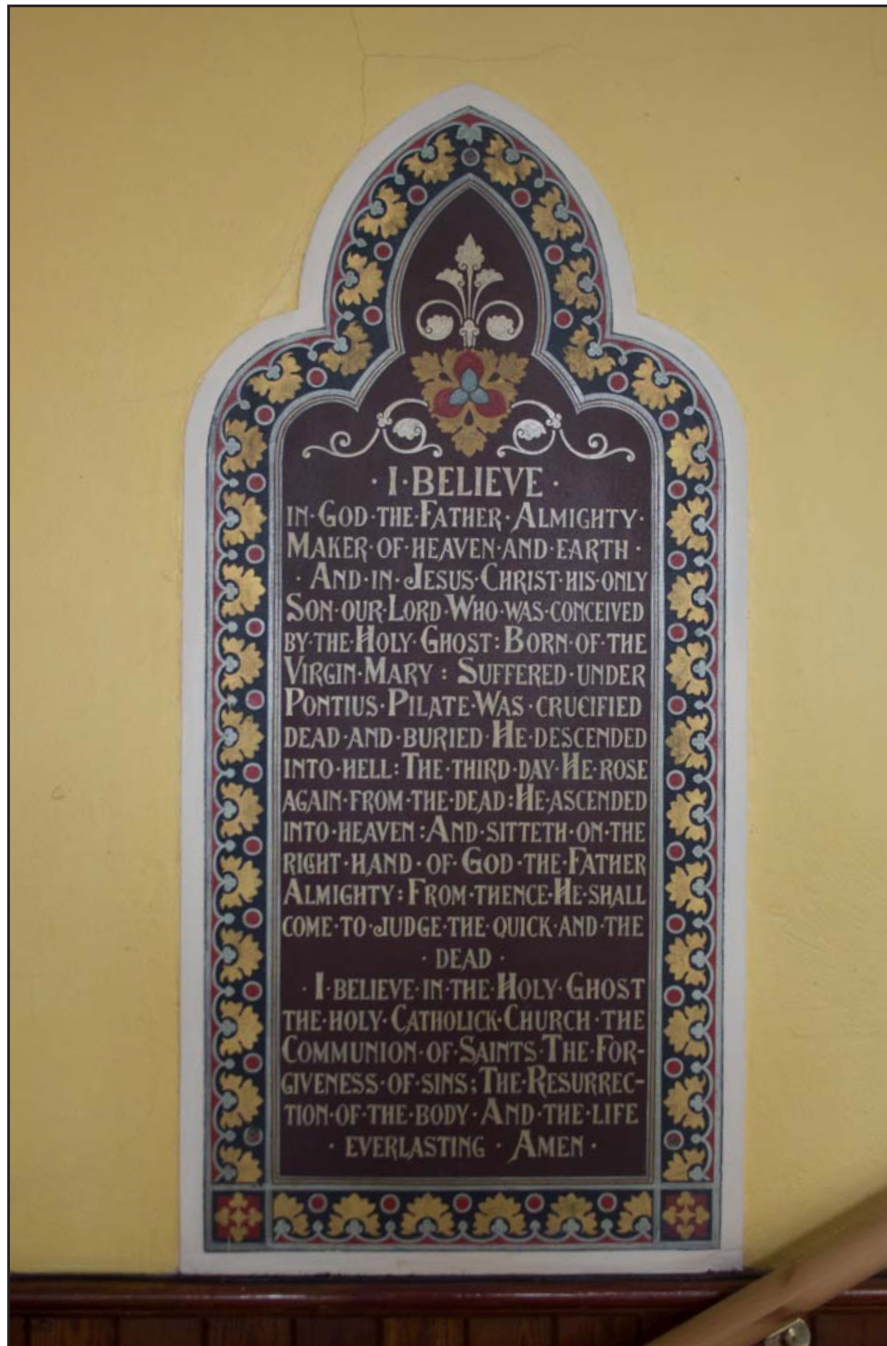 · I · BELIEVE ·
IN · GOD · THE · FATHER · ALMIGHTY ·
MAKER · OF · HEAVEN · AND · EARTH ·
· AND · IN · JESUS · CHRIST · HIS · ONLY
SON · OUR · LORD · WHO · WAS · CONCEIVED
BY · THE · HOLY · GHOST : BORN · OF · THE
VIRGIN · MARY : SUFFERED · UNDER
PONTIUS · PILATE · WAS · CRUCIFIED
DEAD · AND · BURIED · HE · DESCENDED
INTO · HELL : THE · THIRD · DAY · HE · ROSE
AGAIN · FROM · THE · DEAD : HE · ASCENDED
INTO · HEAVEN : AND · SITTETH · ON · THE
RIGHT · HAND · OF · GOD · THE · FATHER
ALMIGHTY : FROM · THENCE · HE · SHALL
COME · TO · JUDGE · THE · QUICK · AND · THE
· DEAD ·
· I · BELIEVE · IN · THE · HOLY · GHOST
THE · HOLY · CATHOLICK · CHURCH · THE
COMMUNION · OF · SAINTS · THE · FOR-
GIVENESS · OF · SINS ; THE · RESURREC-
TION · OF · THE · BODY · AND · THE · LIFE
· EVERLASTING · AMEN ·